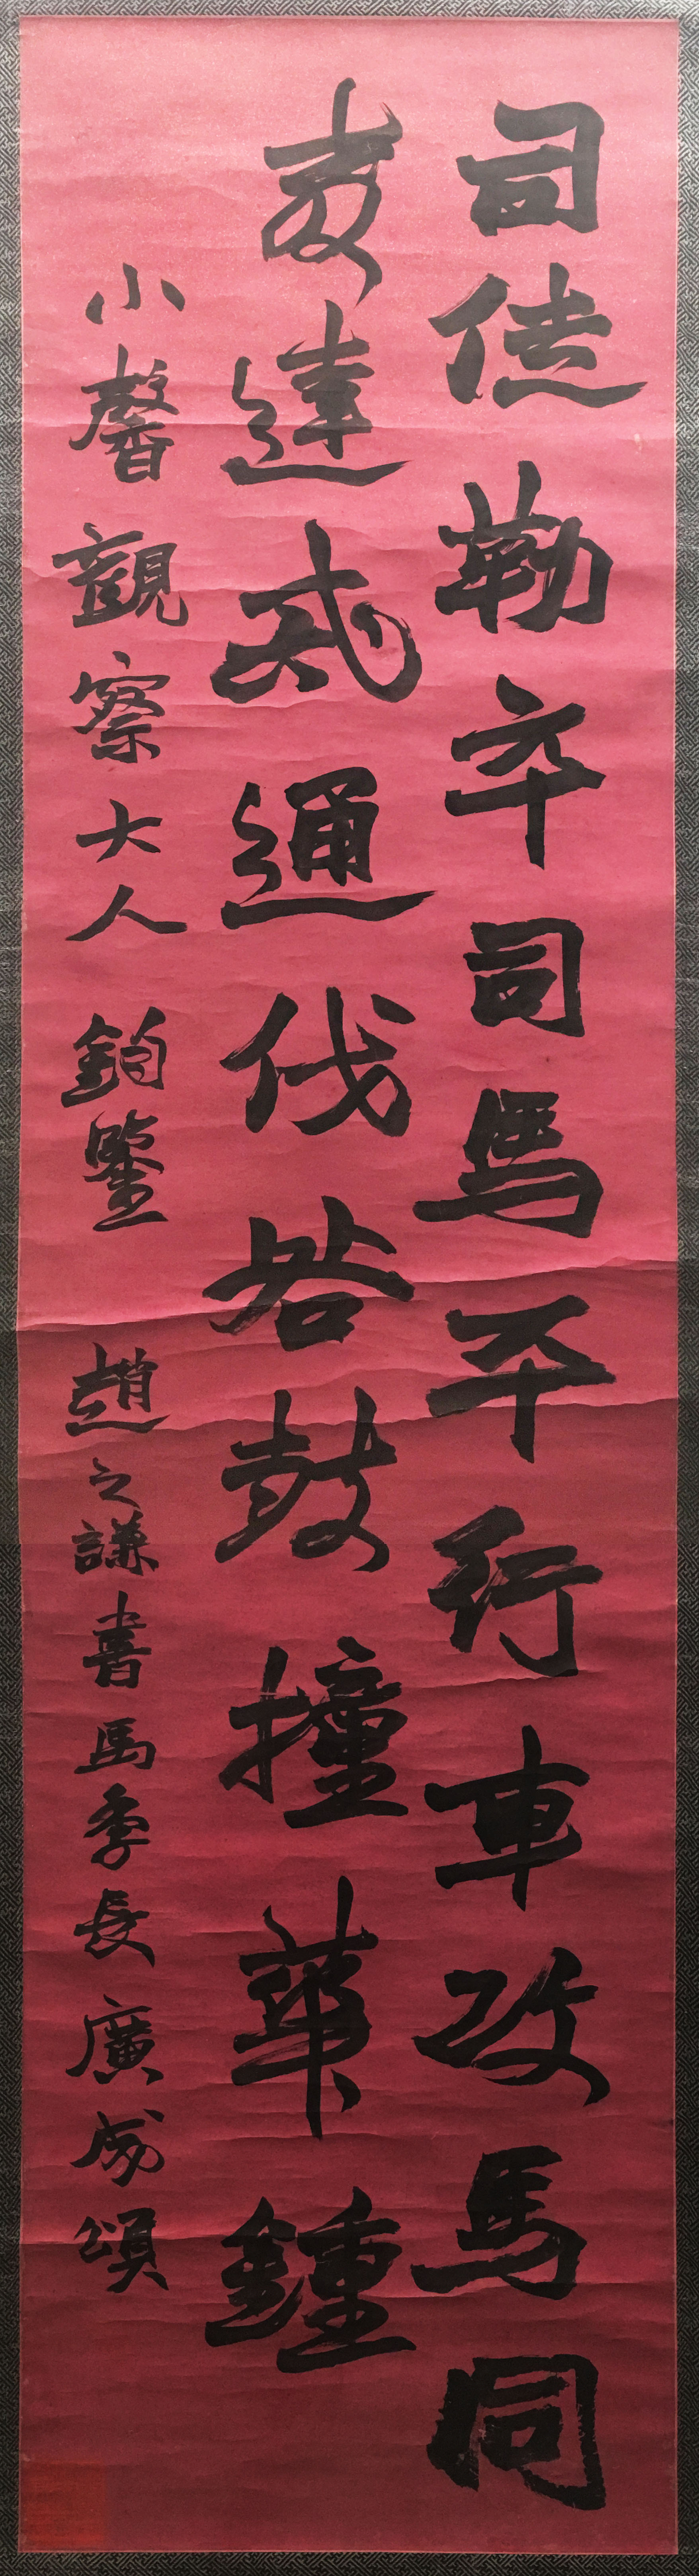 司徒勒卒司馬平行車攻馬同
教達戒通伐咎鼓撞華鍾
小馨觀察大人鈞鑒 趙之謙書馬季長廣成頌